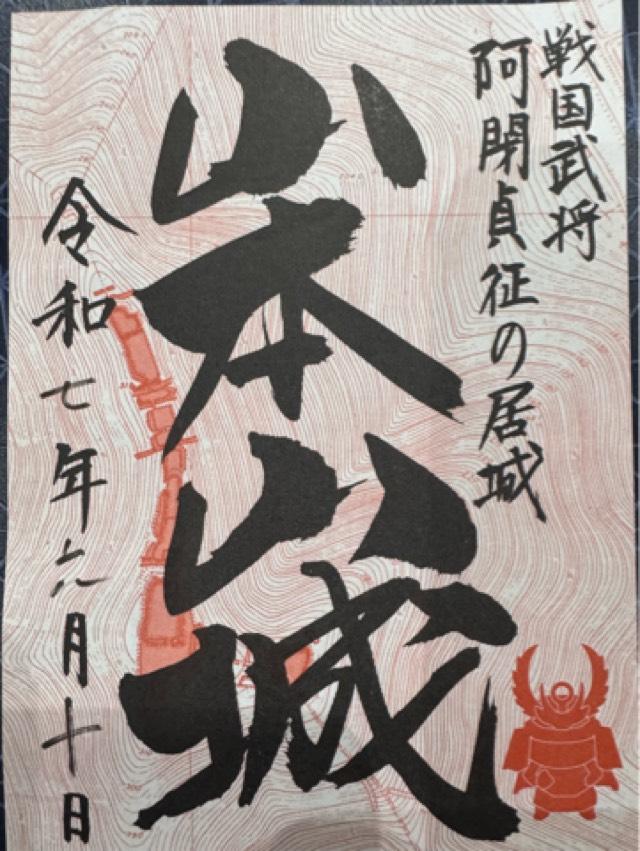 戦国武将
阿閉貞征の居城
山本山城
令和七年六月十日